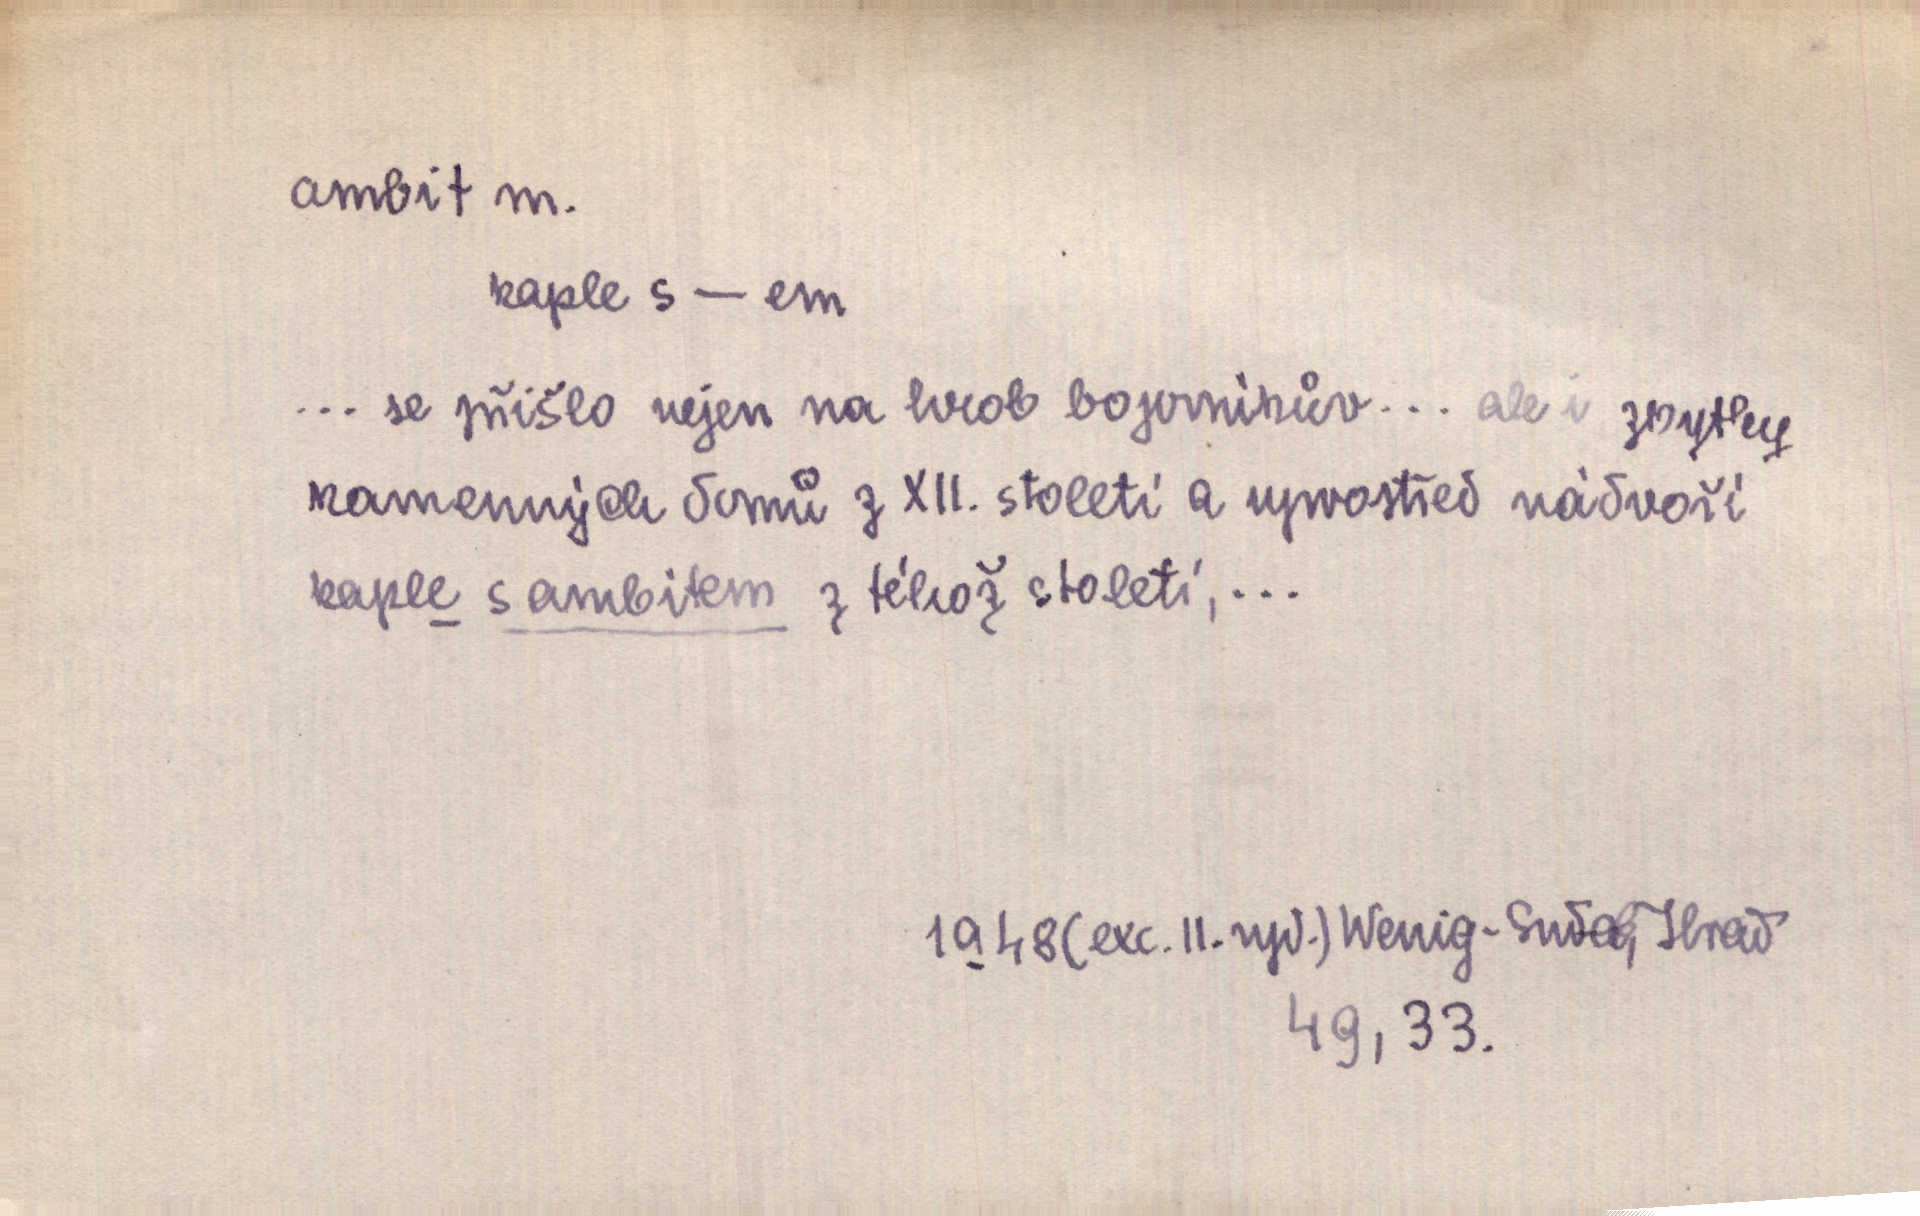 ambit m.
kaple s — em
... se přišlo nejen na hrob bojovníkův ... ale i zbytky
kamenných domů z XII. století a uprostřed nádvoří
kaple s ambitem z téhož století, ...
1948 (exc. II. vyd.) Wenig - Hrad
49, 33.